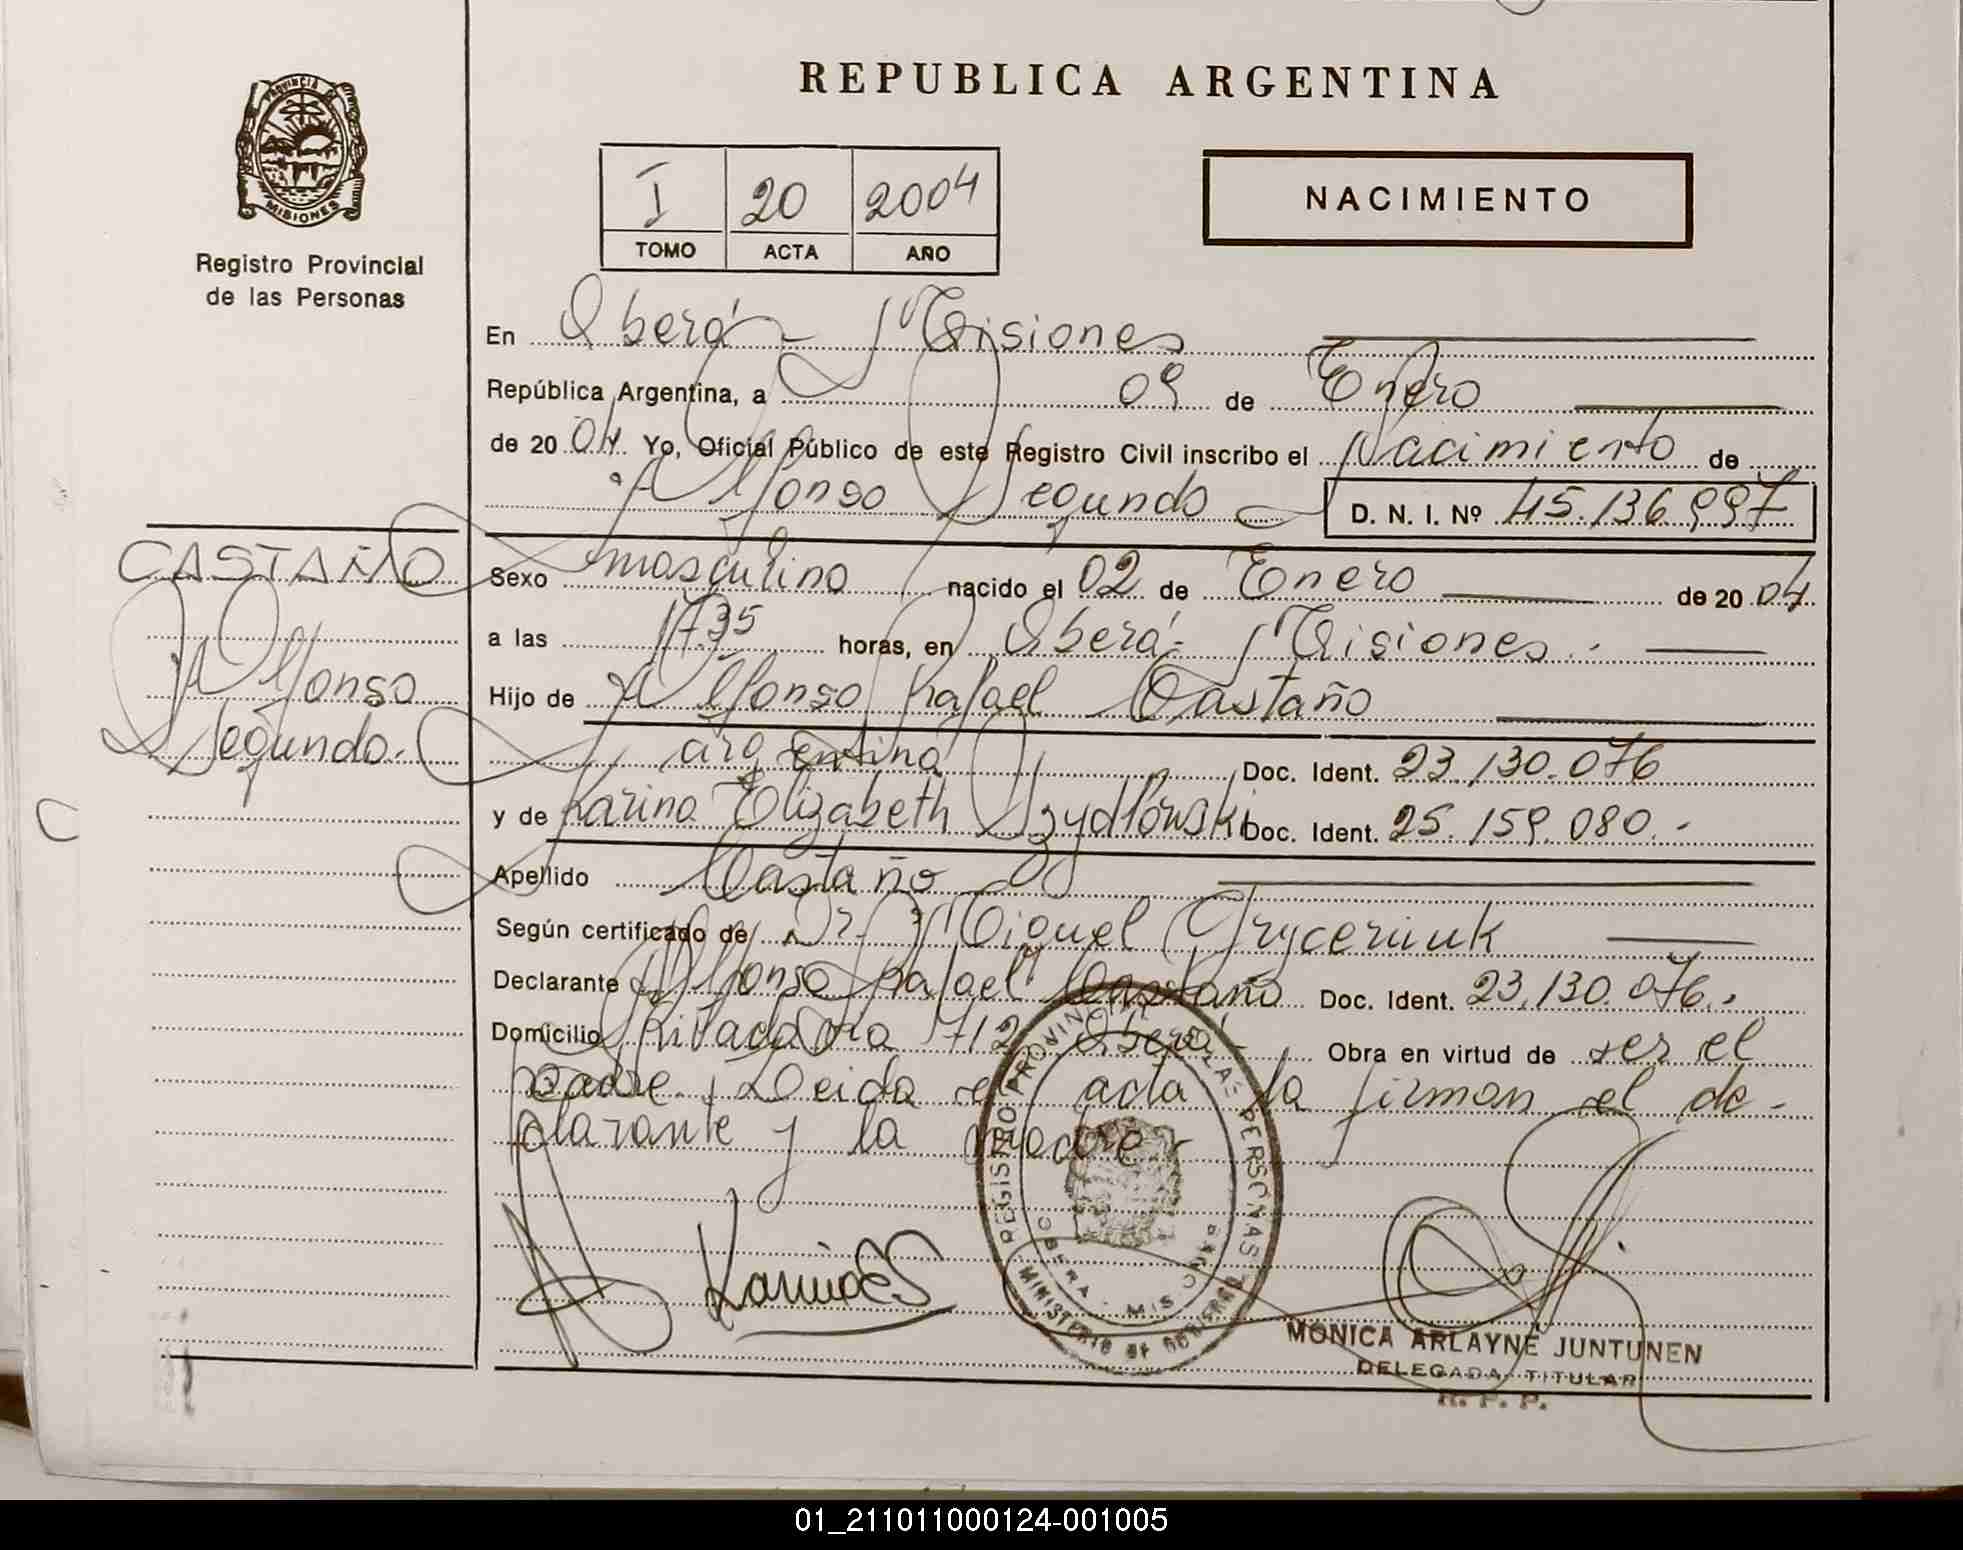 REPUBLICA ARGENTINA
PROVINCIA DE
MISIONES
Registro Provincial
de las Personas
I 20 2004
TOMO ACTA AÑO
NACIMIENTO
En Oberá - Misiones
República Argentina, a 09 de Enero
de 20 04 Yo, Oficial Público de este Registro Civil inscribo el Nacimiento de
Alfonso Segundo D. N. I. Nº 45.136.997
CASTAÑO
Alfonso
Segundo.
Sexo masculino nacido el 02 de Enero de 20 04
a las 17.35 horas, en Oberá - Misiones.-
Hijo de Alfonso Rafael Castaño
argentina Doc. Ident. 23.130.076
y de Karina Elizabeth Szydlowski Doc. Ident. 25.159.080.-
Apellido Castaño
Según certificado de Dr. Miguel Gryceniuk
Declarante Alfonso Rafael Castaño Doc. Ident. 23.130.076.-
Domicilio Rivadavia 712 Oberá,- Obra en virtud de ser el
padre. Leida el acta la firman el de-
clarante y la madre.-
REGISTRO PROVINCIAL DE LAS PERSONAS
MINISTERIO DE GOBIERNO
OBERA - MISIONES
KarinaES
MONICA ARLAYNE JUNTUNEN
DELEGADA TITULAR
R. P. P.
01_211011000124-001005